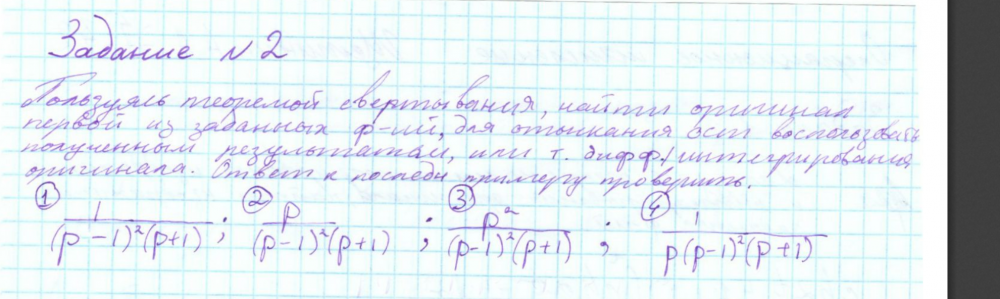 Задание №2
Пользуясь теоремой свертывания, найти оригинал
первой из заданных ф-ий, для отыскания ост воспользовать
полученным результатам, или т. дифф/интегрирования
оригинала. Ответ к последн примеру проверить.
① 1/((p-1)²(p+1)) ; ② p/((p-1)²(p+1)) ; ③ p²/((p-1)²(p+1)) ; ④ 1/(p(p-1)²(p+1))